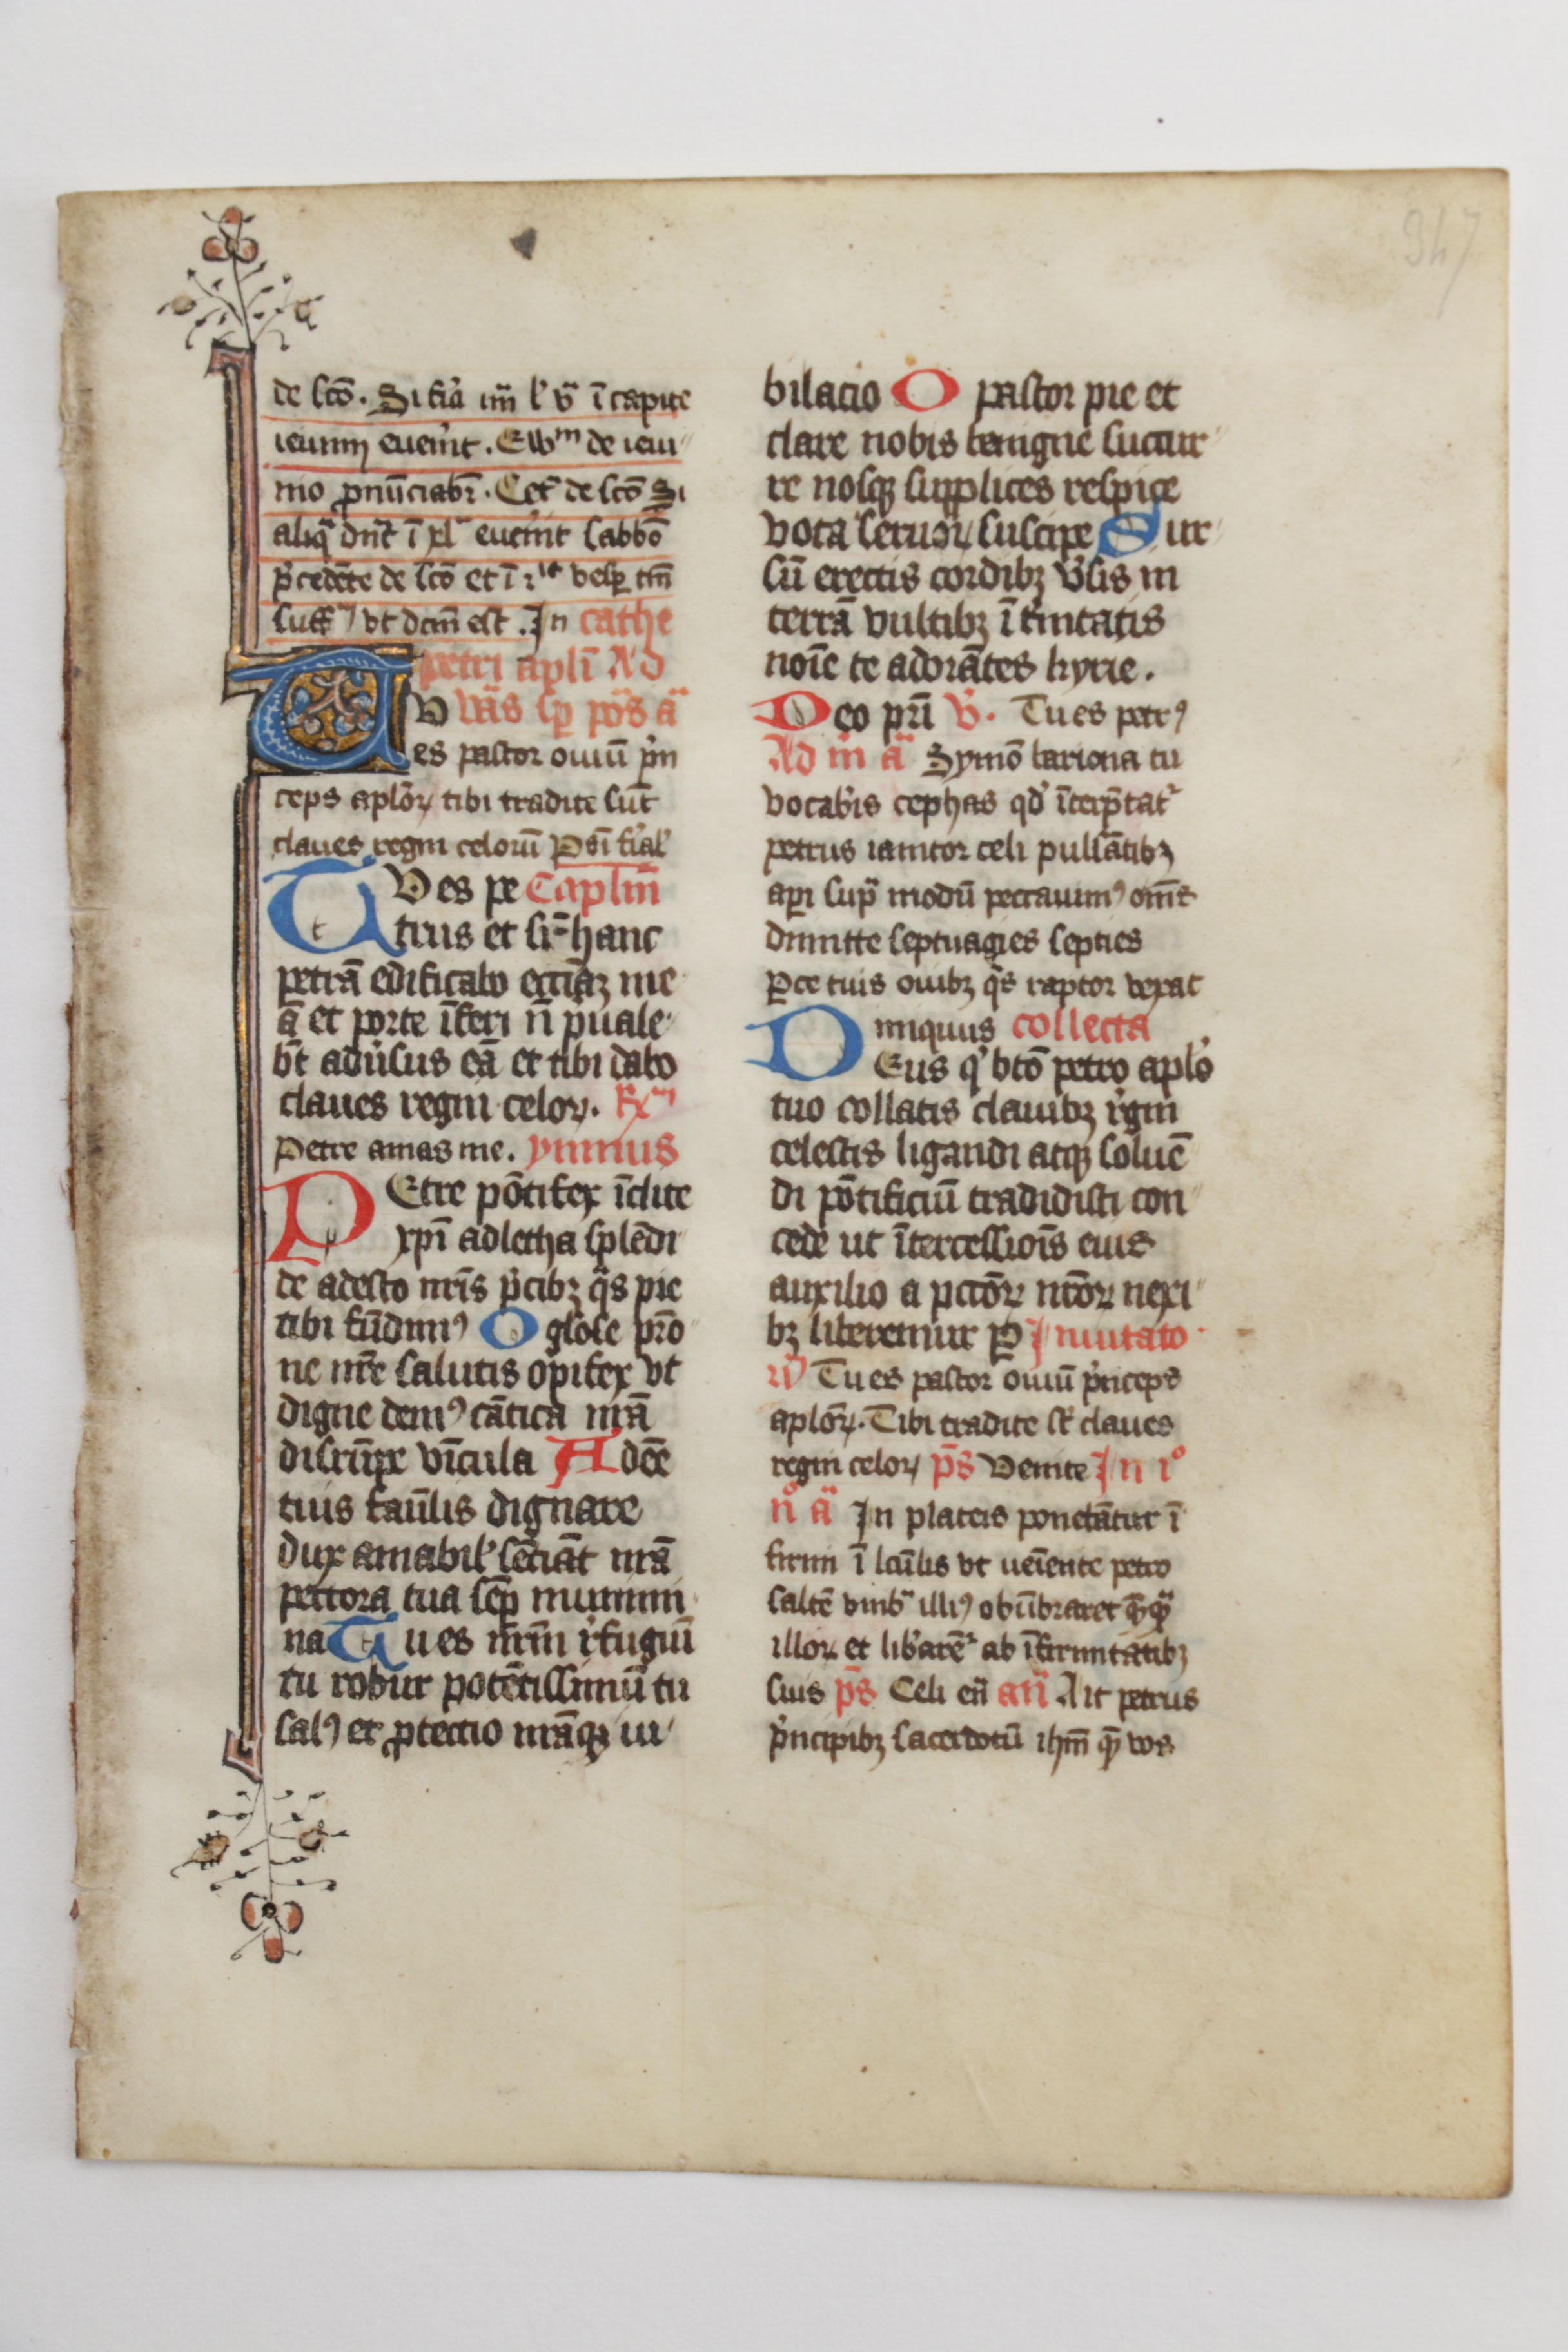 de scō. Si fi'a iiij l' v̄ ī capite
ieiunij euen'it. Ewm de ieiu
nio ꝓnūciabr̄. Cet' de scō Si
aliq̄ dn̄t ī xl euen'it sabbō
p'cedēte de scō et ī 2is vesꝑ tm̄
suff' vt dcm̄ est. In cathe
petri apl'i Ad
v vās sꝑ pōs ā
Tes pastor ouiū p'n
ceps aplōꝝ tibi tradite sūt
claues regni celorū Psī fi'al'
TV es pe Caplm̄
trus et sr̄ hanc
petrā edificabo eccīaꝫ me
ā et porte īferi n̄ p'uale
bt̄ adu'sus eā et tibi dabo
claues regni celoꝝ. Rm
Petre amas me. ymnus
PEtre pōtifex īclite
xp̄i adletha splēdi
de adesto nr̄is p'cibꝫ q̄s pie
tibi fūdimꝰ O glose prō
ne nr̄e salutis opifex vt
digne demꝰ cātica nr̄a
disrūpe vīcula Adēe
tuis faūlis dignare
dux amabil' sētiāt nr̄a
pectora tua sēꝑ munimi
na Tu es nr̄m r'fugiū
tu robur potētissimū tu
salꝰ et ꝓtectio nr̄aqꝫ iu
bilacio O pastor pie et
clare nobis benigne succur
re nosqꝫ supplices respice
vota seruoꝝ suscipe Sur
sū erectis cordibꝫ v'sis in
terrā vultibꝫ ī t'initatis
noīe te adorātes kyrie.
Deo pr̄i v̄. Tu es petrꝰ
Ad m̄ ā Symō bariona tu
vocab'is cephas qd' īterp̄tat'
petrus ianitor celi pulsātibꝫ
aꝑi sup̄ modū peccauimꝰ om̄s
dimitte septuagies septies
Pce tuis ouibꝫ q̄s raptor vexat
iniquus collecta
DEus q' btō petro aplo
tuo collatis clauibꝫ r'gni
celestis ligandi atqꝫ soluē
di pōtificiū tradidisti con
cede ut ītercessiōis eius
auxilio a pctōꝝ nr̄oꝝ nexi
bꝫ liberemur P Inuitato
Tu es pastor ouiū p'nceps
aplōꝝ. Tibi tradite st̄ claues
regni celoꝝ p̄s Venite In 1º
nº ā In plateis ponebātur ī
firmi ī lcūlis vt ueīente petro
saltē vmb' illiꝰ obūbraret qm̄qꝫ
illoꝝ et lib'arēt' ab īfirmitatibꝫ
suis p̄s Celi en̄ an̄ Ait petrus
p'ncipibꝫ sacerdotū ihm̄ qm̄ vos
947